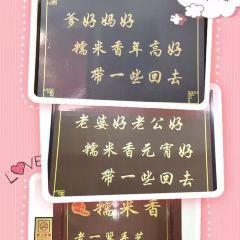 爹好妈好
糯米香年高好
带一些回去
LOVE
老婆好老公好
糯米香元宵好
带一些回去
糯米香
老一辈手艺